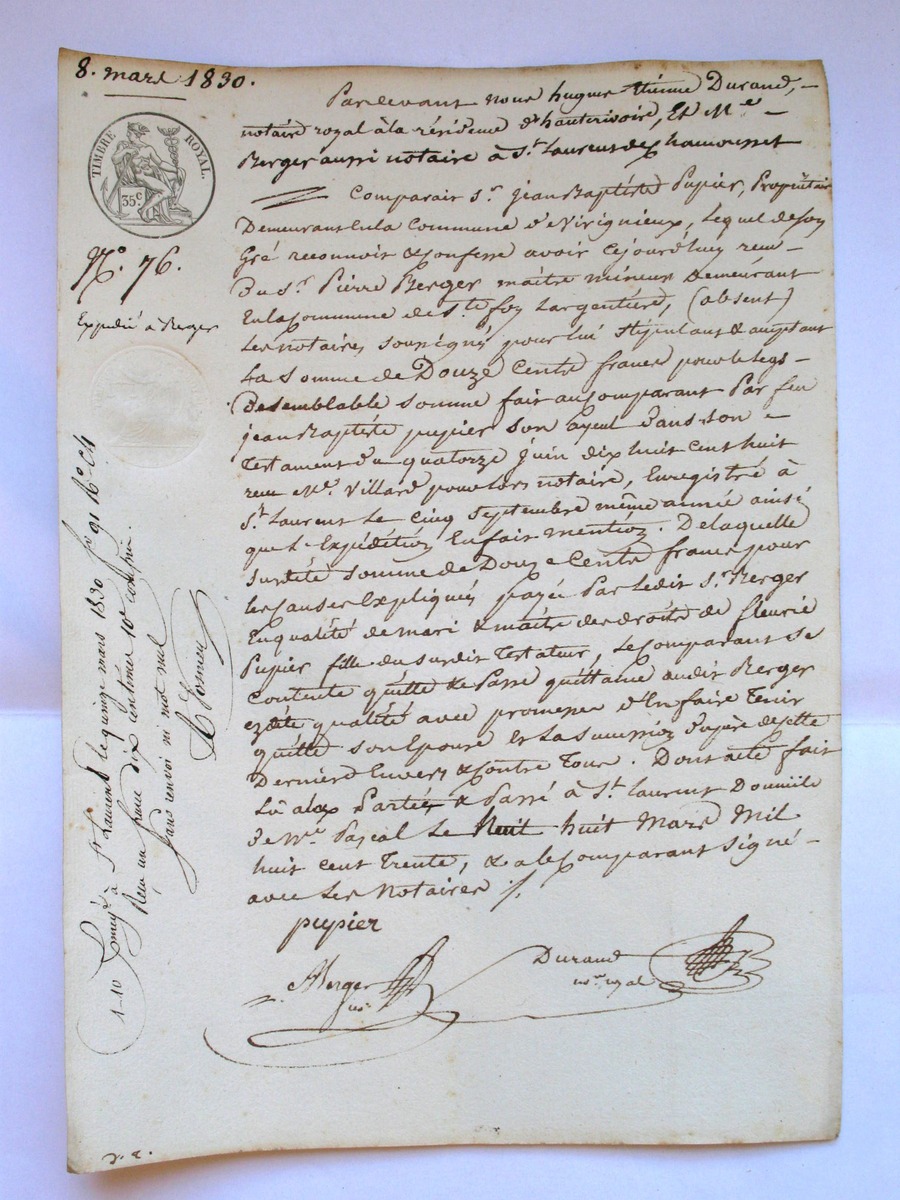 8. mars 1830.
TIMBRE ROYAL.
35 C
N.o 76.
Expédié à Berger
Pardevant nous hugues Etienne Durand,
notaire royal à la résidence d'hauterivoire, Et Me
Berger aussi notaire à St. Laurent de chamousset
Comparait Sr. jean Baptiste Pupier, Propriétaire
Demeurant En la Commune de Virignieux, Lequel de Son
Gré reconnoit & Confesse avoir Cejourd'huy reçu
Du Sr. Pierre Berger maître mineur Demeurant
En la Commune de Ste foy Largentière, (absent)
Les notaires Soussignés pour lui Stipulant & acceptant
La Somme de Douze Cents francs pour le legs
De semblable Somme fait au Comparant Par feu
jean Baptiste pupier Son ayeul Dans Son
Testament Du quatorze juin dix huit Cent huit
reçu Me. Villard pour lors notaire, Enregistré à
St. Laurent Le Cinq Septembre même année ainsi
que L'Expédition En fait mention. De laquelle
Susdite Somme de Douze Cents francs pour
les Causes Expliquées payée Par Ledit Sr. Berger
En qualité de mari & maître des droits de fleurie
Pupier fille du Susdit Testateur, Le Comparant Se
Contente quitte & Passe quittance audit Berger
ezdite qualité avec promesse d'En faire Tenir
quitte Son Epouse Et La Succession Du père de Cette
Dernière Envers & Contre Tous. Dont acte fait
Lû aux Parties & Passé à St. Laurent Domicile
De Me. Pascal Le Huit huit Mars Mil
huit Cent Trente, & a le Comparant Signé
avec Les Notaires
pupier
Berger
nre
Durand
nre. royal
Enregé à St Laurent le quinze mars 1830 fo 91 Ro C4
Reçu un franc dix centimes 10e compris.
Sans renvoi ni mot nul
1-10